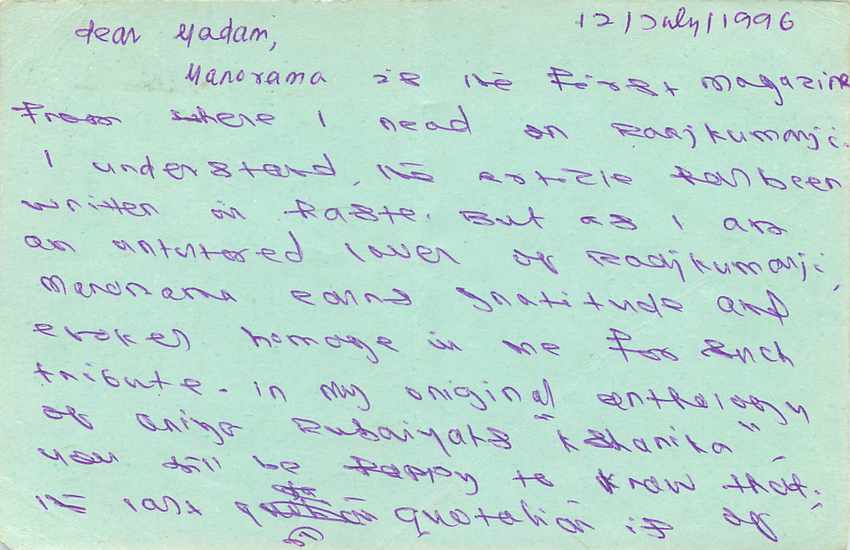 12/July/1996
Dear Madam,
Manorama is the first magazine
from where I read on Raajkumarji.
I understand, the article has been
written in haste. But as I am
an untutored lover of Raajkumarji,
Manorama earns gratitude and
evokes homage in me for such
tribute. In my original anthology
of Rubaiyats "Kshanika",
you will be happy to know that;
the last quotation is of